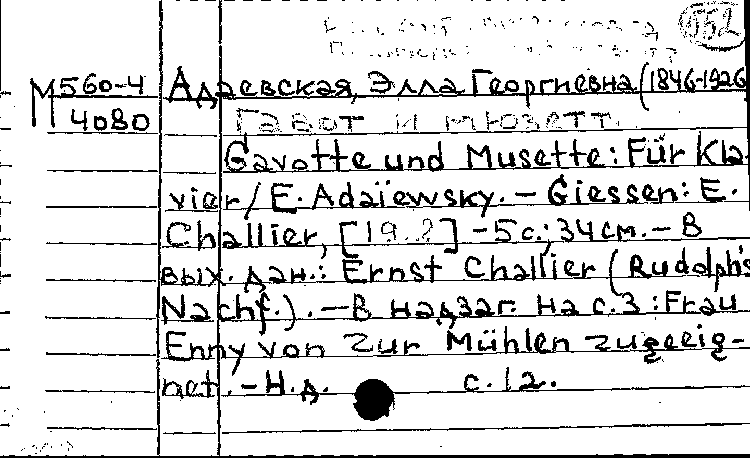 952
М560-4 Адаевская, Элла Георгиевна (1846-1926
4080 Гавот и мюзетт.
Gavotte und Musette: Für Kla-
vier / E. Adaïewsky. – Giessen: E.
Challier, [19.2] – 5 с.; 34 см. – В
вых. дан.: Ernst Challier (Rudolph's
Nachf.). – В надзаг. на с. 3: Frau
Enny von Zur Mühlen zugeeig-
net. – Н.д. с. 12.